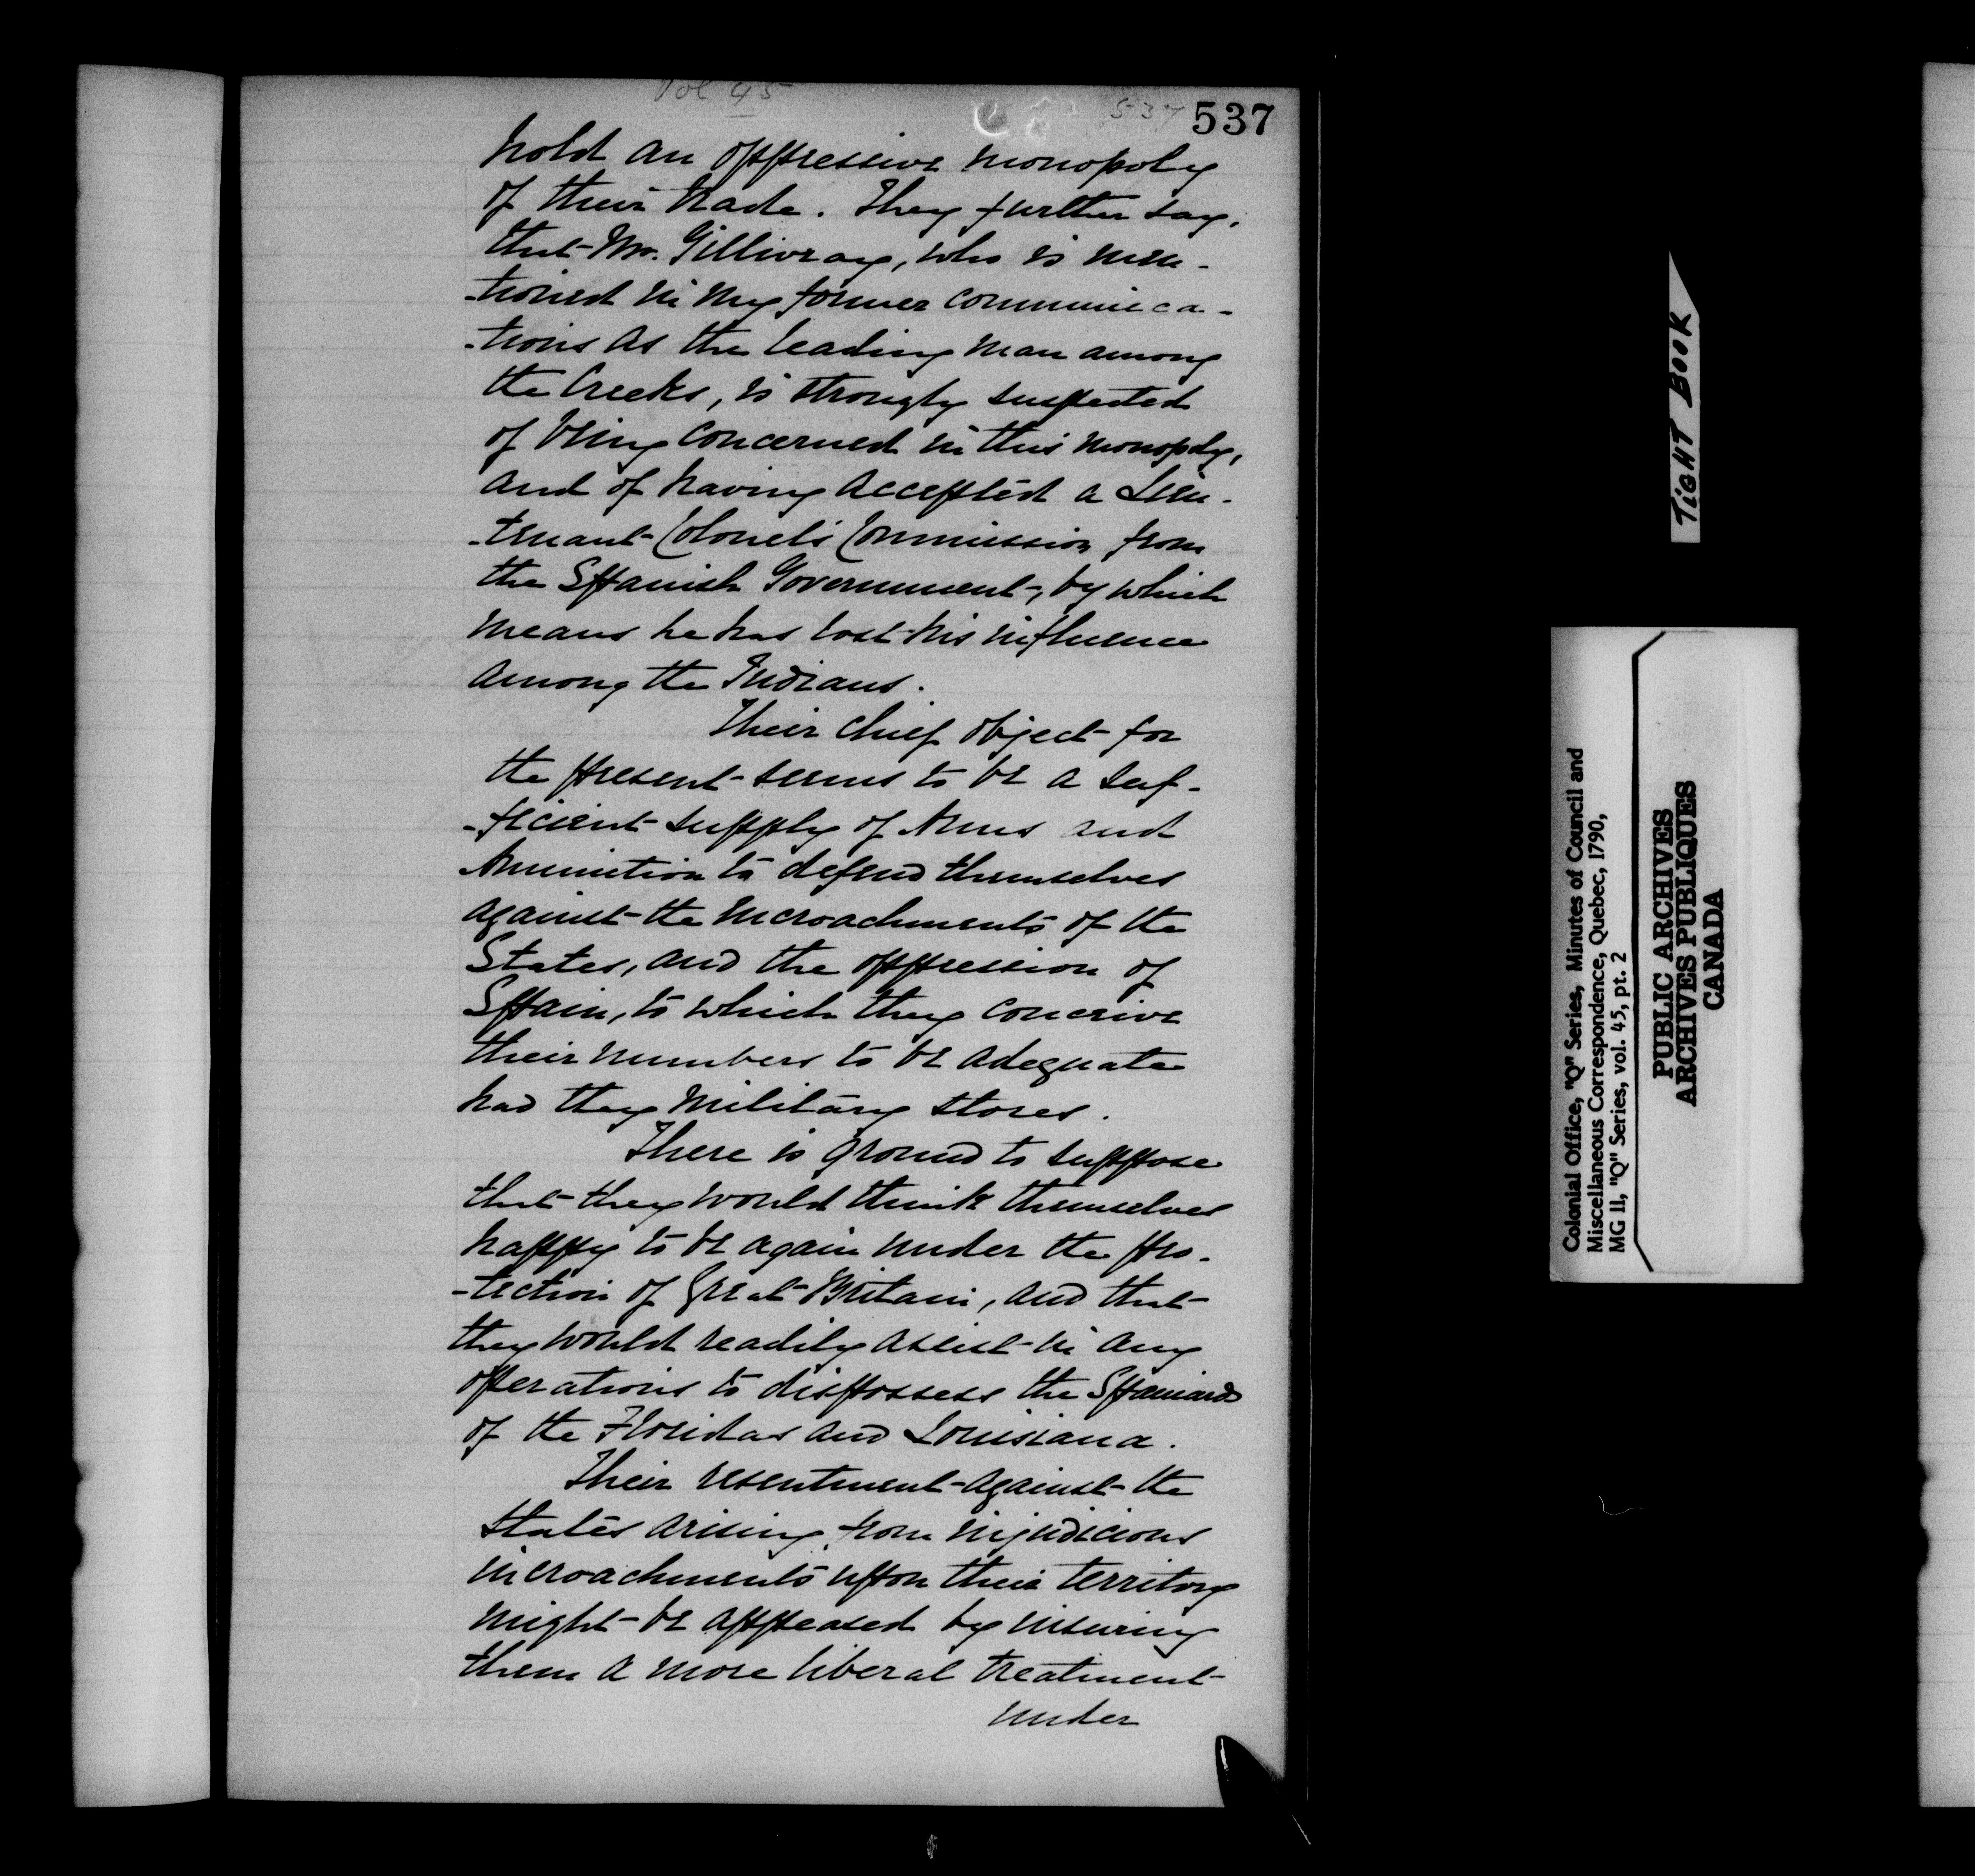 Vol 45
537
537
hold an oppressive monopoly
of their trade. They further say,
that Mr. Gillivray, who is men-
-tioned in my former communica-
-tions as the leading man among
the Creeks, is strongly suspected
of being concerned in this monopoly,
and of having accepted a Lieu-
-tenant-Colonel's Commission from
the Spanish Government, by which
means he has lost his influence
among the Indians.
Their chief object for
the present seems to be a suf-
-ficient supply of Arms and
Amunition to defend themselves
against the incroachments of the
States, and the oppression of
Spain, to which they conceive
their numbers to be adequate
had they military stores.
There is ground to suppose
that they would think themselves
happy to be again under the pro-
-tection of Great Britain, and that
they would readily assist in any
operations to dispossess the Spaniards
of the Floridas and Louisiana.
Their resentment against the
States arising from injudicious
incroachments upon their territory
might be appeased by insuring
them a more liberal treatment
under
TIGHT BOOK
Colonial Office, "Q" Series, Minutes of Council and
Miscellaneous Correspondence, Quebec, 1790,
MG 11, "Q" Series, vol. 45, pt. 2
PUBLIC ARCHIVES
ARCHIVES PUBLIQUES
CANADA